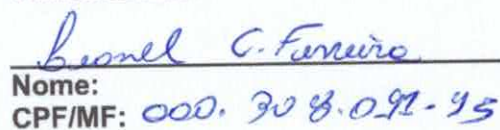 Leonel C. Ferreira
Nome:
CPF/MF: 000.308.091-95